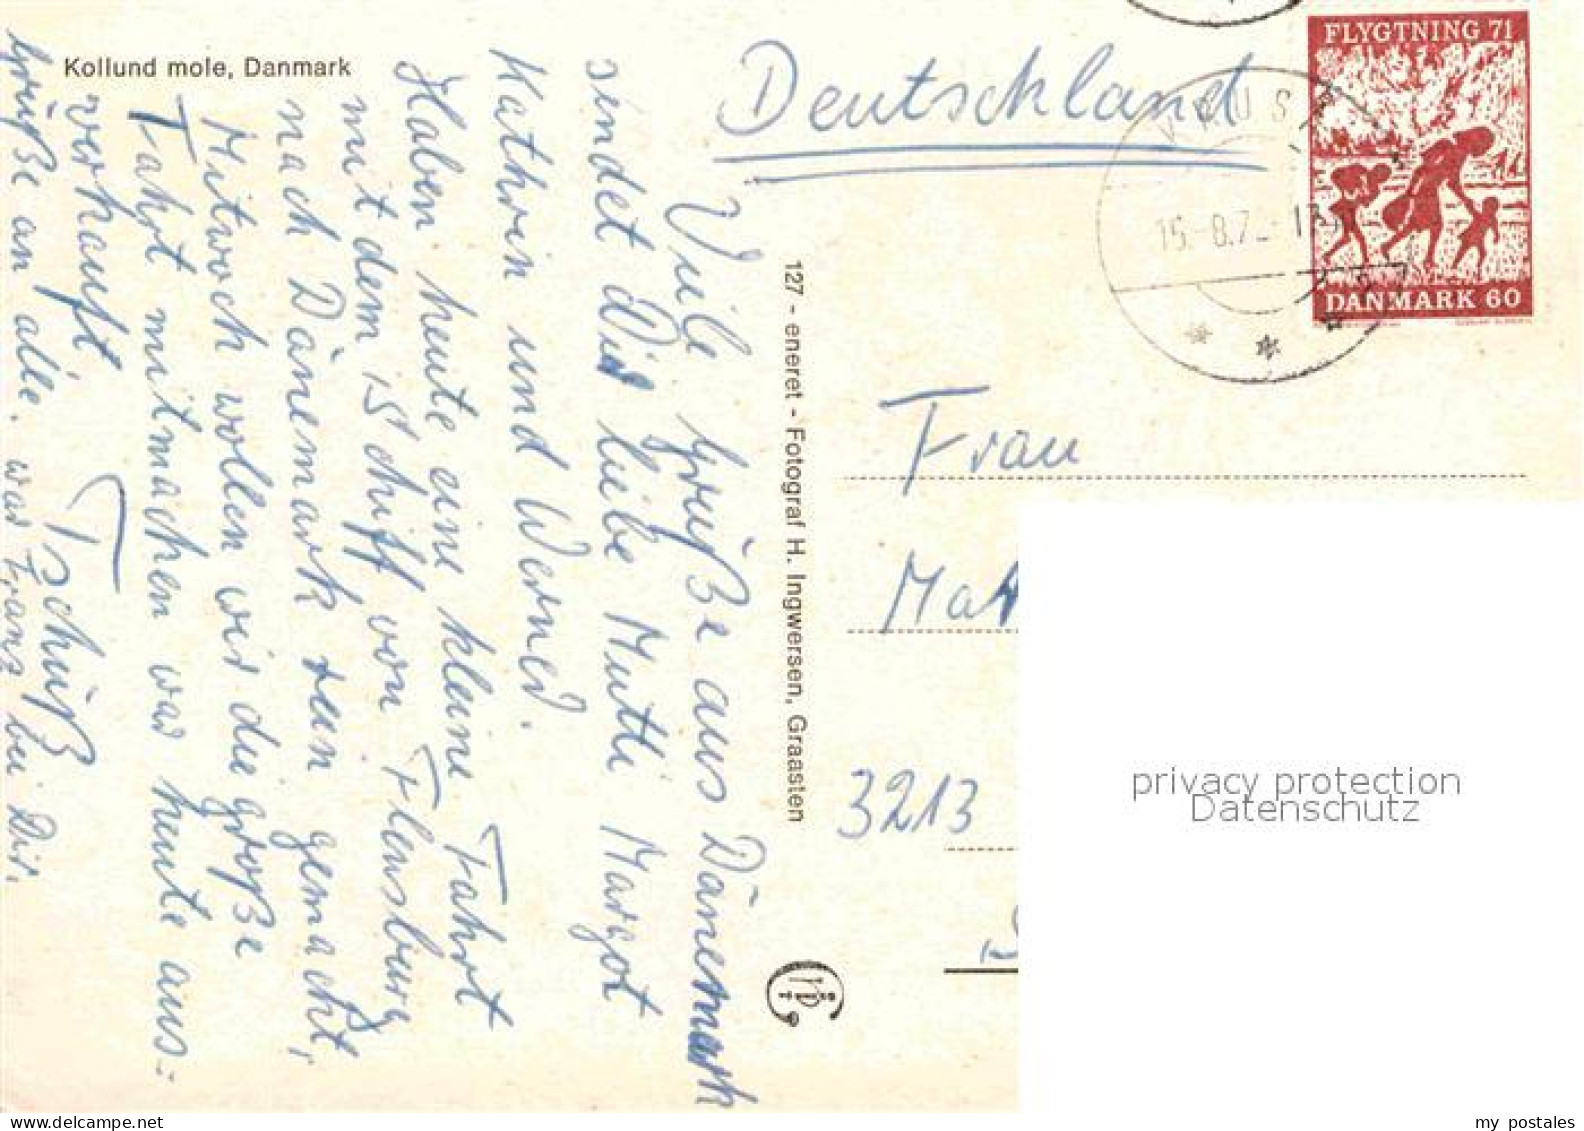 Kollund mole, Danmark
Deutschland
FLYGTNING 71
DANMARK 60
KRUSÅ
15.-8.7
Viele Grüße aus Dänemark
sindet Dir liebe Mutti Margot
Kathrin und Werner.
Haben heute eine kleine Fahrt
mit dem Schiff von Flensburg
nach Dänemark rein gemacht,
Mitwoch wollen wir die große
Fahrt mitmachen war heute aus-
verkauft.
Tschüß
Grüße an alle. war Franz bei Dir.
127 - eneret - Fotograf H. Ingwersen, Graasten
Frau
3213
privacy protection
Datenschutz
my postales